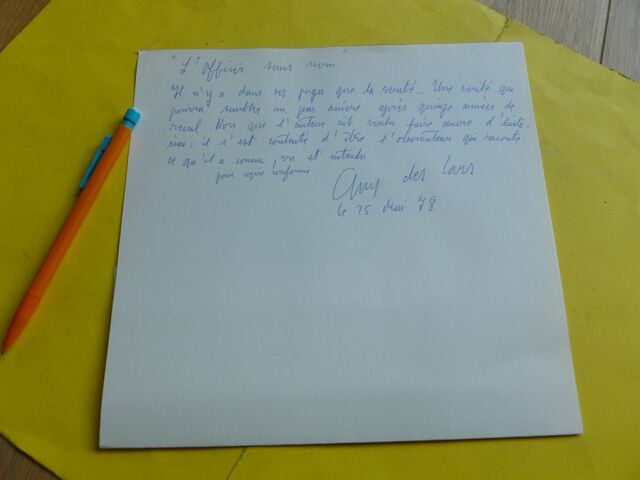 "L'Officier sans nom"
Il n'y a dans ces pages que la vérité... Une vérité qui
pourra sembler un peu amère après quinze années de
recul. Non que l'auteur ait voulu faire œuvre d'histo-
rien : il s'est contenté d'être l'observateur qui raconte
ce qu'il a connu, vu et entendu
pour copie conforme
Guy des Cars
le 25 Mai 78